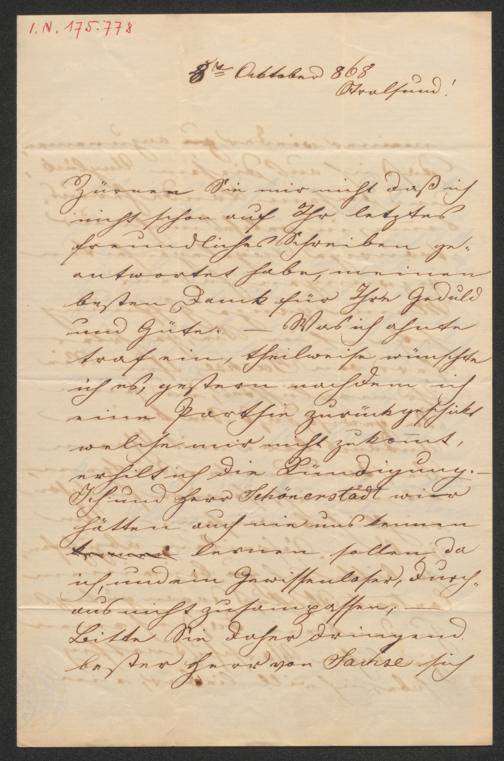 I.N. 175.778
8ten Oktober 868
Stralsund!
Zürnen Sie mir nicht daß ich
nicht schon auf Ihr letztes
freundliches Schreiben ge-
antwortet habe, meinen
besten Dank für Ihre Geduld
und Güte. — Was ich ahnte
traf ein, theilweise wünschte
ich es, gestern nachdem ich
eine Parthie zurückgeschickt
welche mir nicht zukomt,
erhielt ich die Kündigung. —
Ich und Herr Schönerstädt wir
hätten auch nie uns kennen
lernen sollen, da
ich, und ein Gewissenloser, durch-
aus nicht zusampassen, —
Bitte Sie daher dringend
bester Herr von Sachse sich